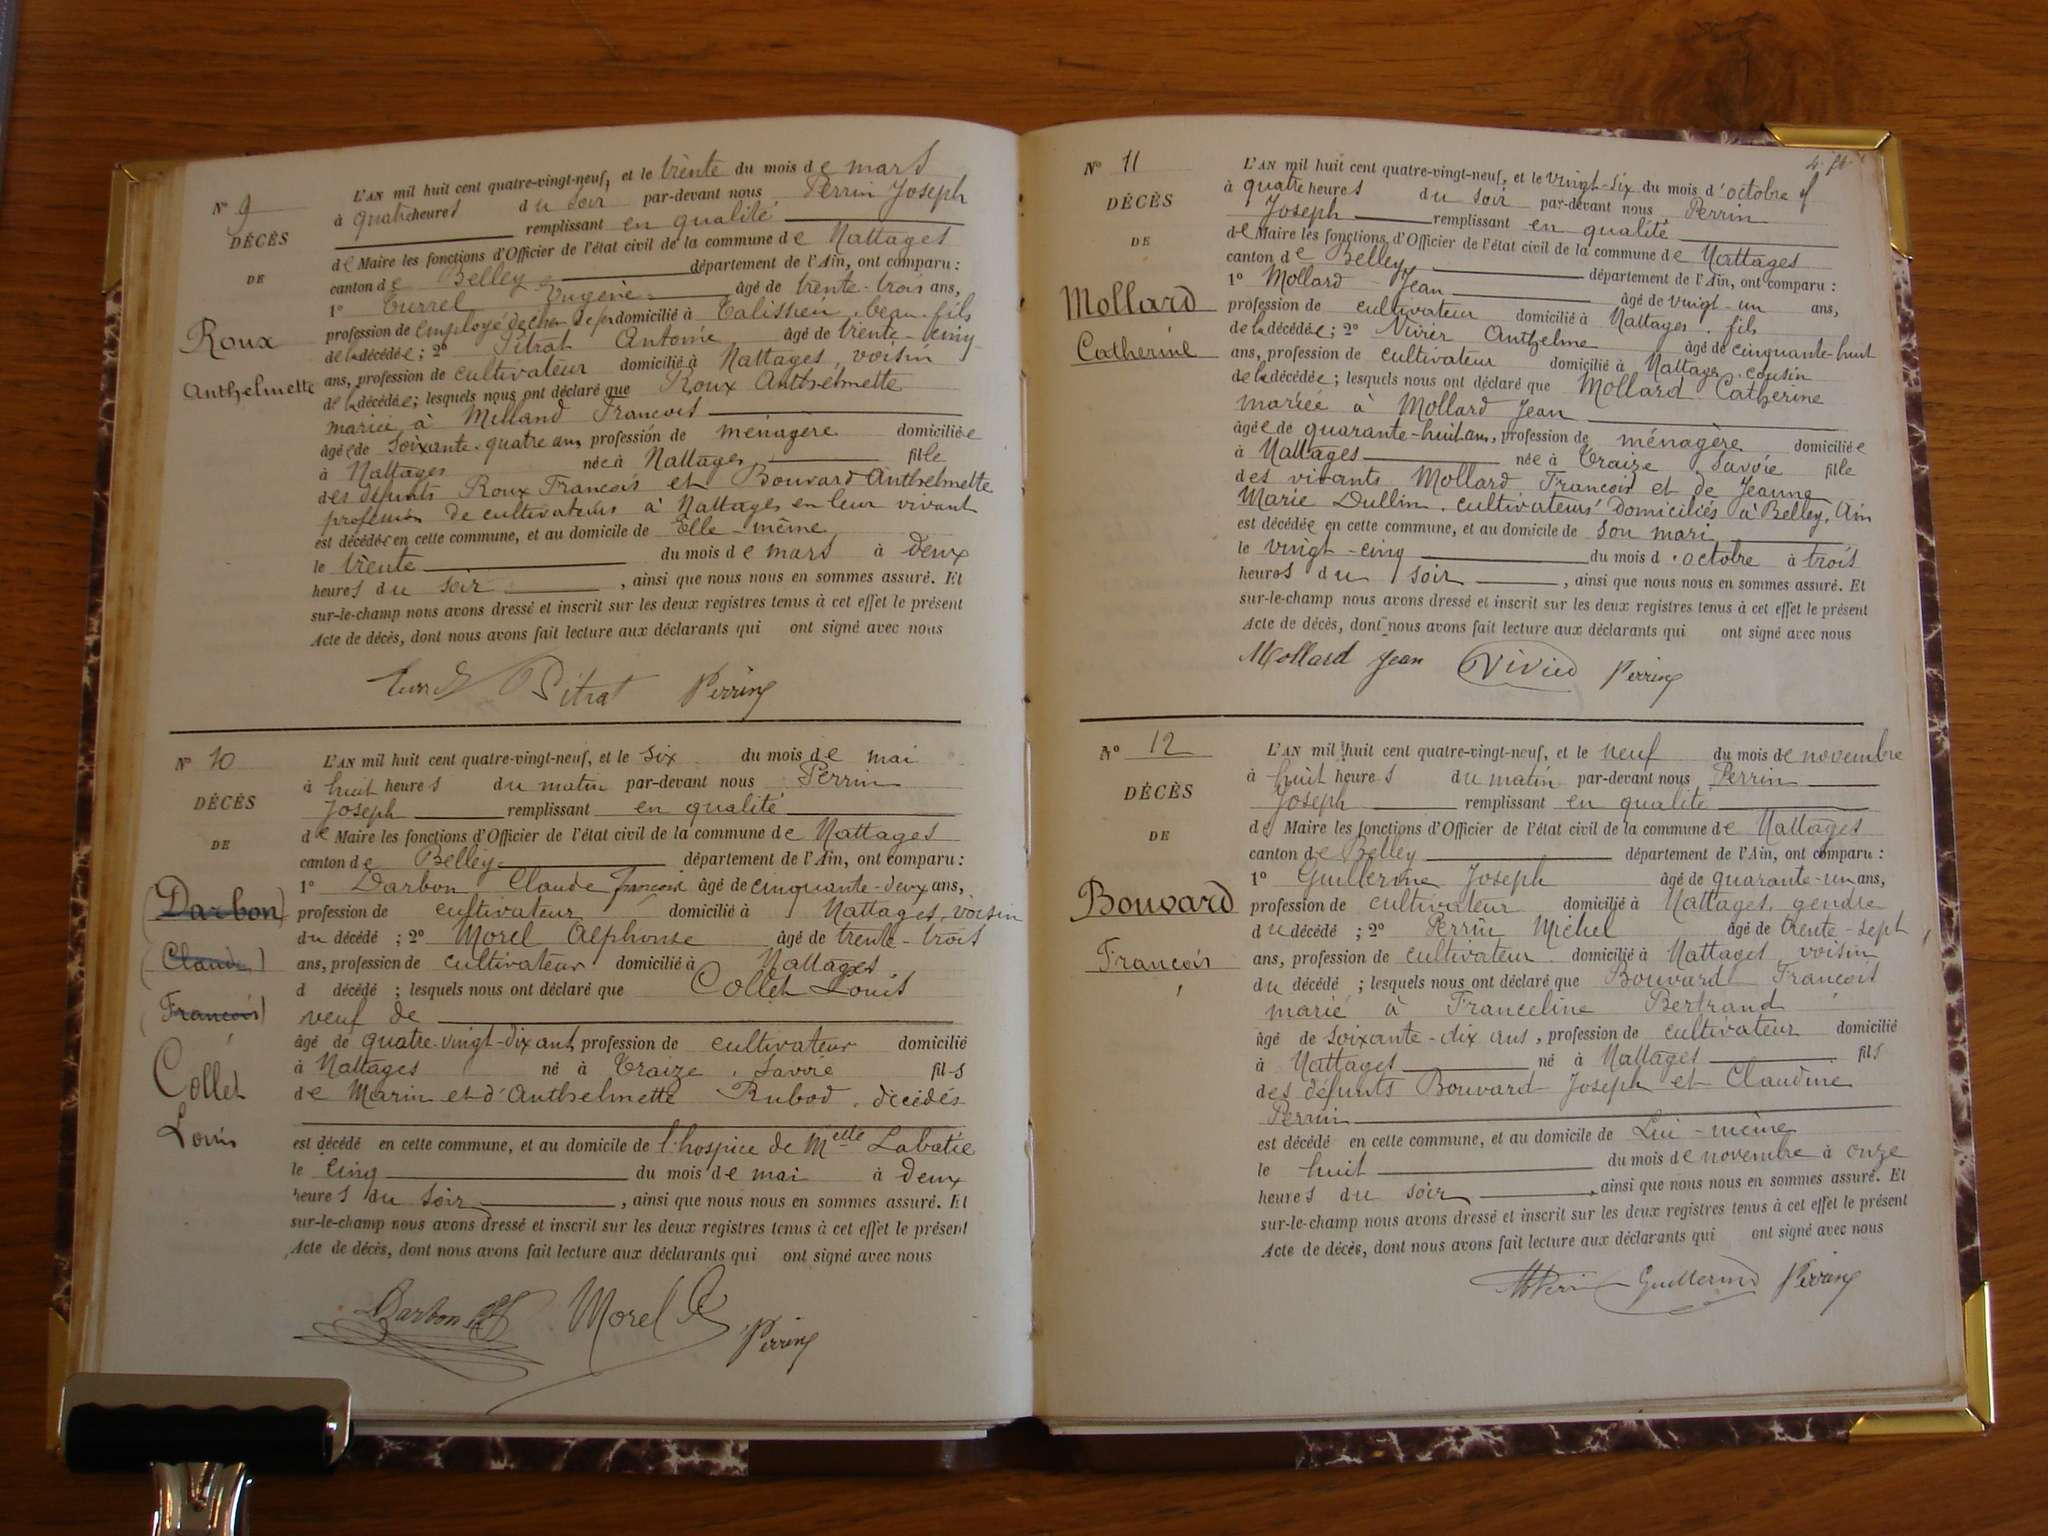 N° 9
DÉCÈS
DE
Roux
Anthelmette
L'AN mil huit cent quatre-vingt-neuf, et le trente du mois de mars
à quatre heures du soir par-devant nous Perrin Joseph
remplissant en qualité
de Maire les fonctions d'Officier de l'état civil de la commune de Nattages
canton de Belley département de l'Ain, ont comparu :
1° Turrel Eugène âgé de trente-trois ans,
profession de employé de chem. de fer domicilié à Talissieu, beau-fils
de la décédée ; 2° Pitrat Antoine âgé de trente-cinq
ans, profession de cultivateur domicilié à Nattages, voisin
de la décédée ; lesquels nous ont déclaré que Roux Anthelmette
mariée à Milland François
âgée de soixante-quatre ans profession de ménagère domiciliée
à Nattages née à Nattages fille
des défunts Roux François et Bouvard Anthelmette
profession de cultivateurs à Nattages en leur vivant
est décédée en cette commune, et au domicile de Elle-même
le trente du mois de mars à deux
heures du soir , ainsi que nous nous en sommes assuré. Et
sur-le-champ nous avons dressé et inscrit sur les deux registres tenus à cet effet le présent
Acte de décès, dont nous avons fait lecture aux déclarants qui ont signé avec nous
Pitrat Perrin
N° 10
DÉCÈS
DE
(Darbon)
(Claude)
(François)
Collet
Louis
L'AN mil huit cent quatre-vingt-neuf, et le six du mois de mai
à huit heures du matin par-devant nous Perrin
Joseph remplissant en qualité
de Maire les fonctions d'Officier de l'état civil de la commune de Nattages
canton de Belley département de l'Ain, ont comparu :
1° Darbon Claude françois âgé de cinquante-deux ans,
profession de cultivateur domicilié à Nattages, voisin
du décédé ; 2° Morel Alphonse âgé de trente-trois
ans, profession de cultivateur domicilié à Nattages
d décédé ; lesquels nous ont déclaré que Collet Louis
veuf de
âgé de quatre-vingt-dix ans profession de cultivateur domicilié
à Nattages né à Traize, Savoie fils
de Marin et d'Anthelmette Rubod, décédés
est décédé en cette commune, et au domicile de l'hospice de Melle Labatie
le cinq du mois de mai à deux
heures du soir , ainsi que nous nous en sommes assuré. Et
sur-le-champ nous avons dressé et inscrit sur les deux registres tenus à cet effet le présent
Acte de décès, dont nous avons fait lecture aux déclarants qui ont signé avec nous
Darbon Morel Perrin
N° 11
DÉCÈS
DE
Mollard
Catherine
L'AN mil huit cent quatre-vingt-neuf, et le vingt-six du mois d'octobre
à quatre heures du soir par-devant nous Perrin
Joseph remplissant en qualité
de Maire les fonctions d'Officier de l'état civil de la commune de Nattages
canton de Belley département de l'Ain, ont comparu :
1° Mollard Jean âgé de vingt-un ans,
profession de cultivateur domicilié à Nattages, fils
de la décédée ; 2° Vivier Anthelme âgé de cinquante-huit
ans, profession de cultivateur domicilié à Nattages, cousin
de la décédée ; lesquels nous ont déclaré que Mollard Catherine
mariée à Mollard Jean
âgée de quarante-huit ans, profession de ménagère domiciliée
à Nattages née à Traize, Savoie fille
des vivants Mollard François et de Jeanne
Marie Dullin, cultivateurs domiciliés à Belley, Ain
est décédée en cette commune, et au domicile de son mari
le vingt-cinq du mois d'octobre à trois
heures du soir , ainsi que nous nous en sommes assuré. Et
sur-le-champ nous avons dressé et inscrit sur les deux registres tenus à cet effet le présent
Acte de décès, dont nous avons fait lecture aux déclarants qui ont signé avec nous
Mollard Jean Vivier Perrin
N° 12
DÉCÈS
DE
Bouvard
François
L'AN mil huit cent quatre-vingt-neuf, et le neuf du mois de novembre
à huit heures du matin par-devant nous Perrin
Joseph remplissant en qualité
de Maire les fonctions d'Officier de l'état civil de la commune de Nattages
canton de Belley département de l'Ain, ont comparu :
1° Guillermе Joseph âgé de quarante-un ans,
profession de cultivateur domicilié à Nattages, gendre
du décédé ; 2° Perrin Michel âgé de trente-sept
ans, profession de cultivateur domicilié à Nattages, voisin
du décédé ; lesquels nous ont déclaré que Bouvard François
marié à Franceline Bertrand
âgé de soixante-dix ans, profession de cultivateur domicilié
à Nattages né à Nattages fils
des défunts Bouvard Joseph et Claudine
Perrin
est décédé en cette commune, et au domicile de Lui-même
le huit du mois de novembre à onze
heures du soir , ainsi que nous nous en sommes assuré. Et
sur-le-champ nous avons dressé et inscrit sur les deux registres tenus à cet effet le présent
Acte de décès, dont nous avons fait lecture aux déclarants qui ont signé avec nous
Perrin